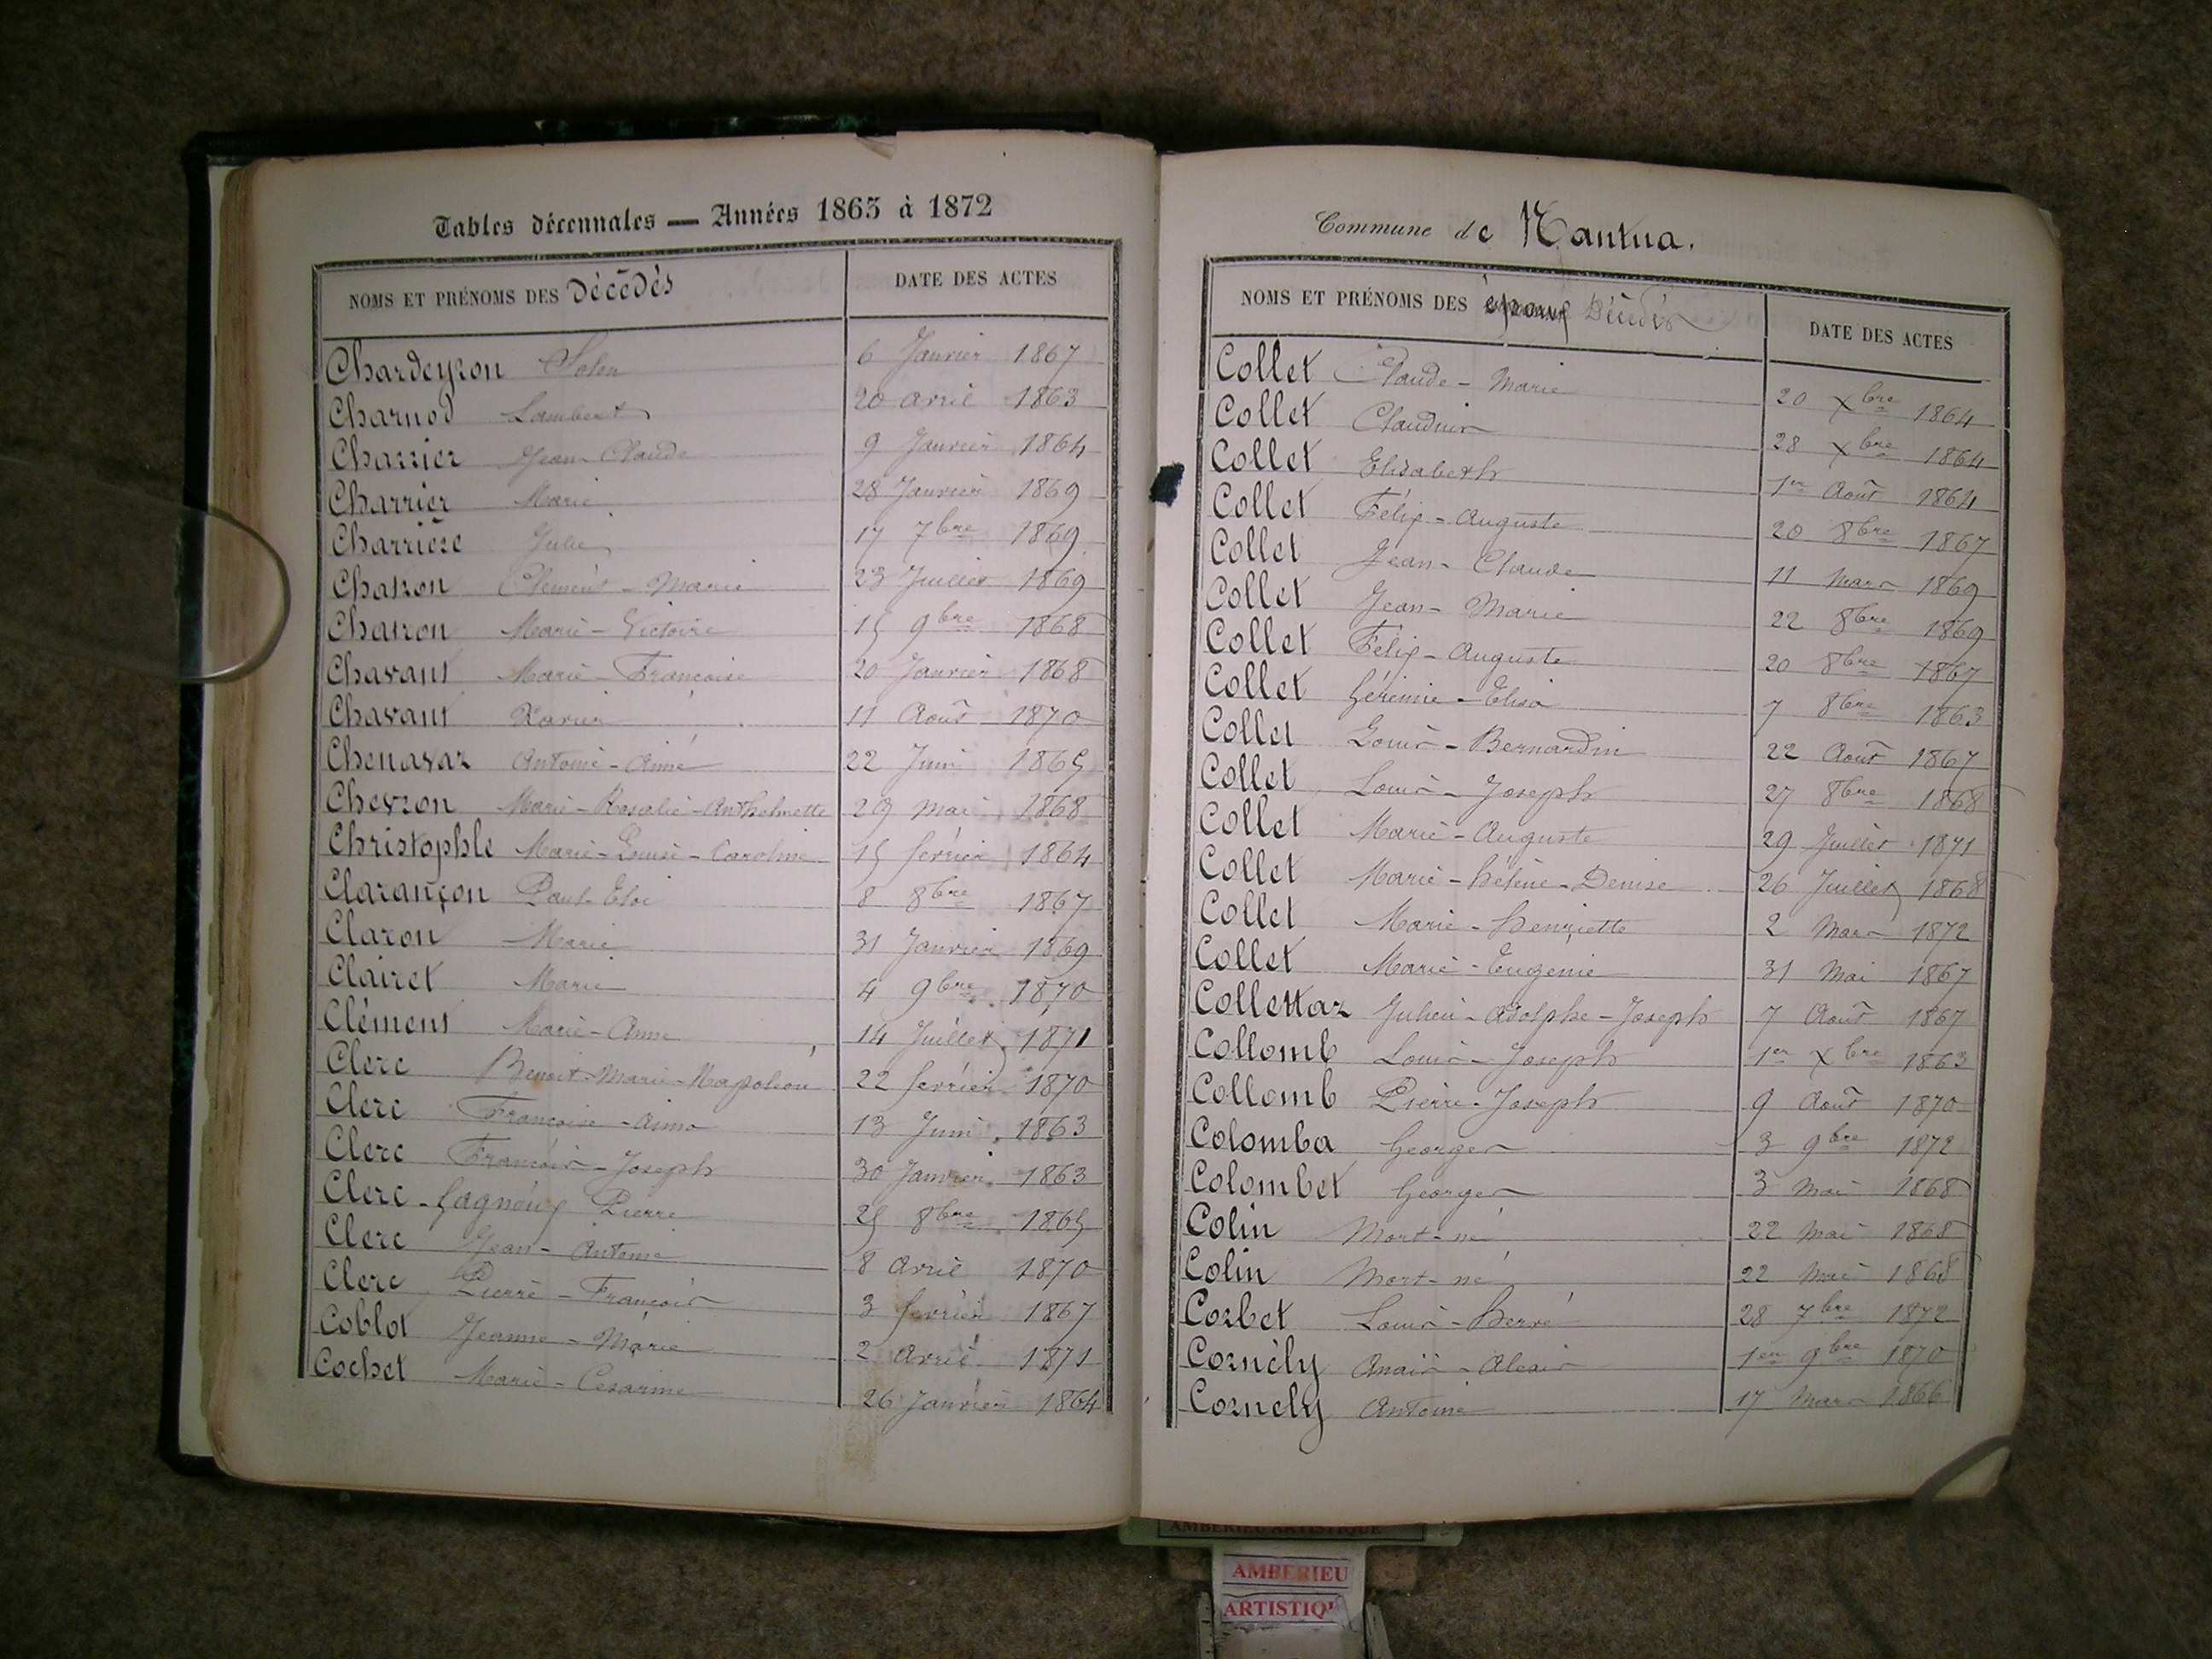 Tables décennales — Années 1863 à 1872
NOMS ET PRÉNOMS DES Décédés DATE DES ACTES
Chardeyron Solon 6 Janvier 1867
Charnod Lambert 20 avril 1863
Charrier Jean-Claude 9 Janvier 1864
Charrier Marie 28 Janvier 1869
Charrière Julie 17 7bre 1869
Chatron Clément-Marie 23 Juillet 1869
Chatron Marie-Victoire 15 9bre 1868
Chavant Marie-Françoise 20 Janvier 1868
Chavant Xavier 11 Août 1870
Chenavaz Antoine-Aimé 22 Juin 1865
Chevron Marie-Rosalie-Anthelmette 29 Mai 1868
Christophle Marie-Louise-Caroline 15 février 1864
Clarançon Paul-Eloi 8 8bre 1867
Claron Marie 31 Janvier 1869
Clairet Marie 4 9bre 1870
Clément Marie-Anne 14 Juillet 1871
Clerc Benoit-Marie-Napoléon 22 février 1870
Clerc Françoise-Aima 13 Juin 1863
Clerc François-Joseph 30 Janvier 1863
Clerc-Gagnoux Pierre 25 8bre 1865
Clerc Jean-Antoine 8 Avril 1870
Clerc Pierre-François 3 février 1867
Coblot Jeanne-Marie 2 Avril 1871
Cochet Marie-Césarine 26 Janvier 1864
Commune de Nantua.
NOMS ET PRÉNOMS DES époux Décédés DATE DES ACTES
Collet Claude-Marie 20 Xbre 1864
Collet Claudius 28 Xbre 1864
Collet Elisabeth 1er Août 1864
Collet Félix-Auguste 20 8bre 1867
Collet Jean-Claude 11 Mars 1869
Collet Jean-Marie 22 8bre 1869
Collet Félix-Auguste 20 8bre 1867
Collet Gérémie-Elisa 7 8bre 1863
Collet Louis-Bernardin 22 Août 1867
Collet Louis-Joseph 27 8bre 1868
Collet Marie-Auguste 29 Juillet 1871
Collet Marie-hélène-Denise 26 Juillet 1868
Collet Marie-henriette 2 Mars 1872
Collet Marie-Eugénie 31 Mai 1867
Collettaz Julien-Adolphe-Joseph 7 Août 1867
Collomb Louis-Joseph 1er Xbre 1863
Collomb Pierre-Joseph 9 Août 1870
Colomba Georges 3 9bre 1872
Colombet Georges 3 Mai 1868
Colin Mort-né 22 Mai 1868
Colin Mort-né 22 Mai 1868
Corbet Louis-Hervé 28 7bre 1872
Cornèly Anaïs-Alexis 1er 9bre 1870
Cornely Antoine 17 Mars 1866
AMBERIEU ARTISTIQUE
AMBERIEU
ARTISTIQU